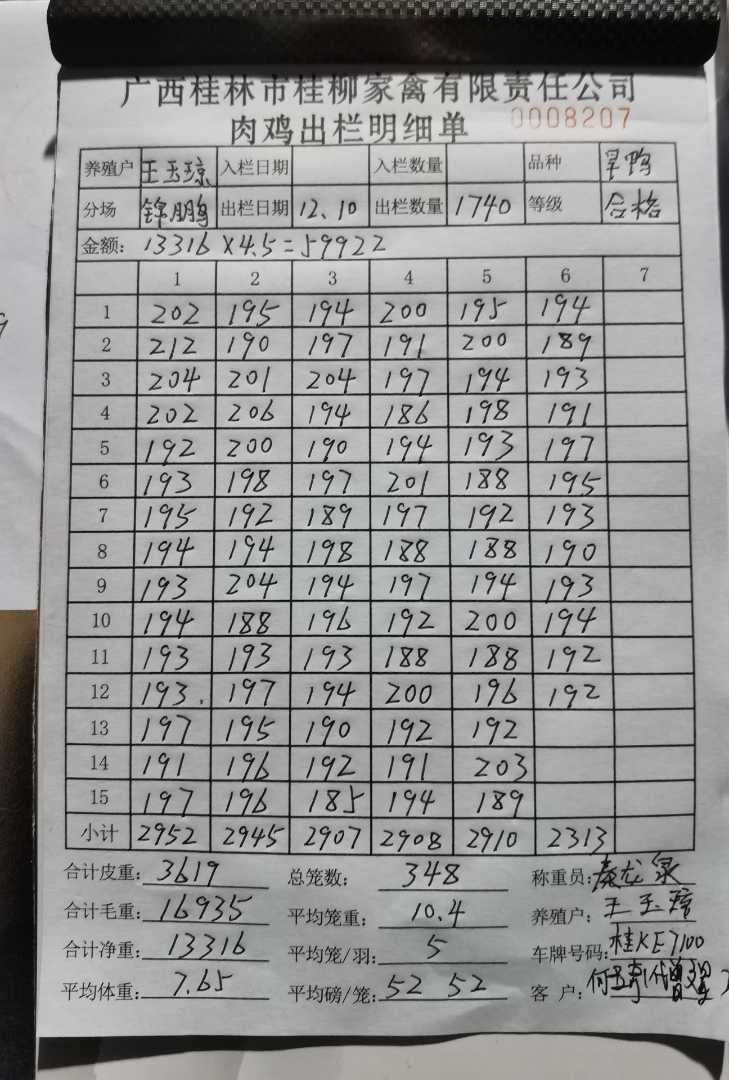 广西桂林市桂柳家禽有限责任公司
肉鸡出栏明细单 0008207
养殖户 王玉琼 入栏日期 入栏数量 品种 旱鸭
分场 锦鹏 出栏日期 12.10 出栏数量 1740 等级 合格
金额: 13316×4.5=59922
1 2 3 4 5 6 7
1 202 195 194 200 195 194
2 212 190 197 191 200 189
3 204 201 204 197 194 193
4 202 206 194 186 198 191
5 192 200 190 194 193 197
6 193 198 197 201 188 195
7 195 192 189 197 192 193
8 194 194 198 188 188 190
9 193 204 194 197 194 193
10 194 188 196 192 200 194
11 193 193 193 188 188 192
12 193. 197 194 200 196 192
13 197 195 190 192 192
14 191 196 192 191 203
15 197 196 185 194 189
小计 2952 2945 2907 2908 2910 2313
合计皮重: 3619 总笼数: 348 称重员: 秦龙泉
合计毛重: 16935 平均笼重: 10.4 养殖户: 王玉琼
合计净重: 13316 平均笼/羽: 5 车牌号码: 桂KE7100
平均体重: 7.65 平均磅/笼: 52 52 客 户: